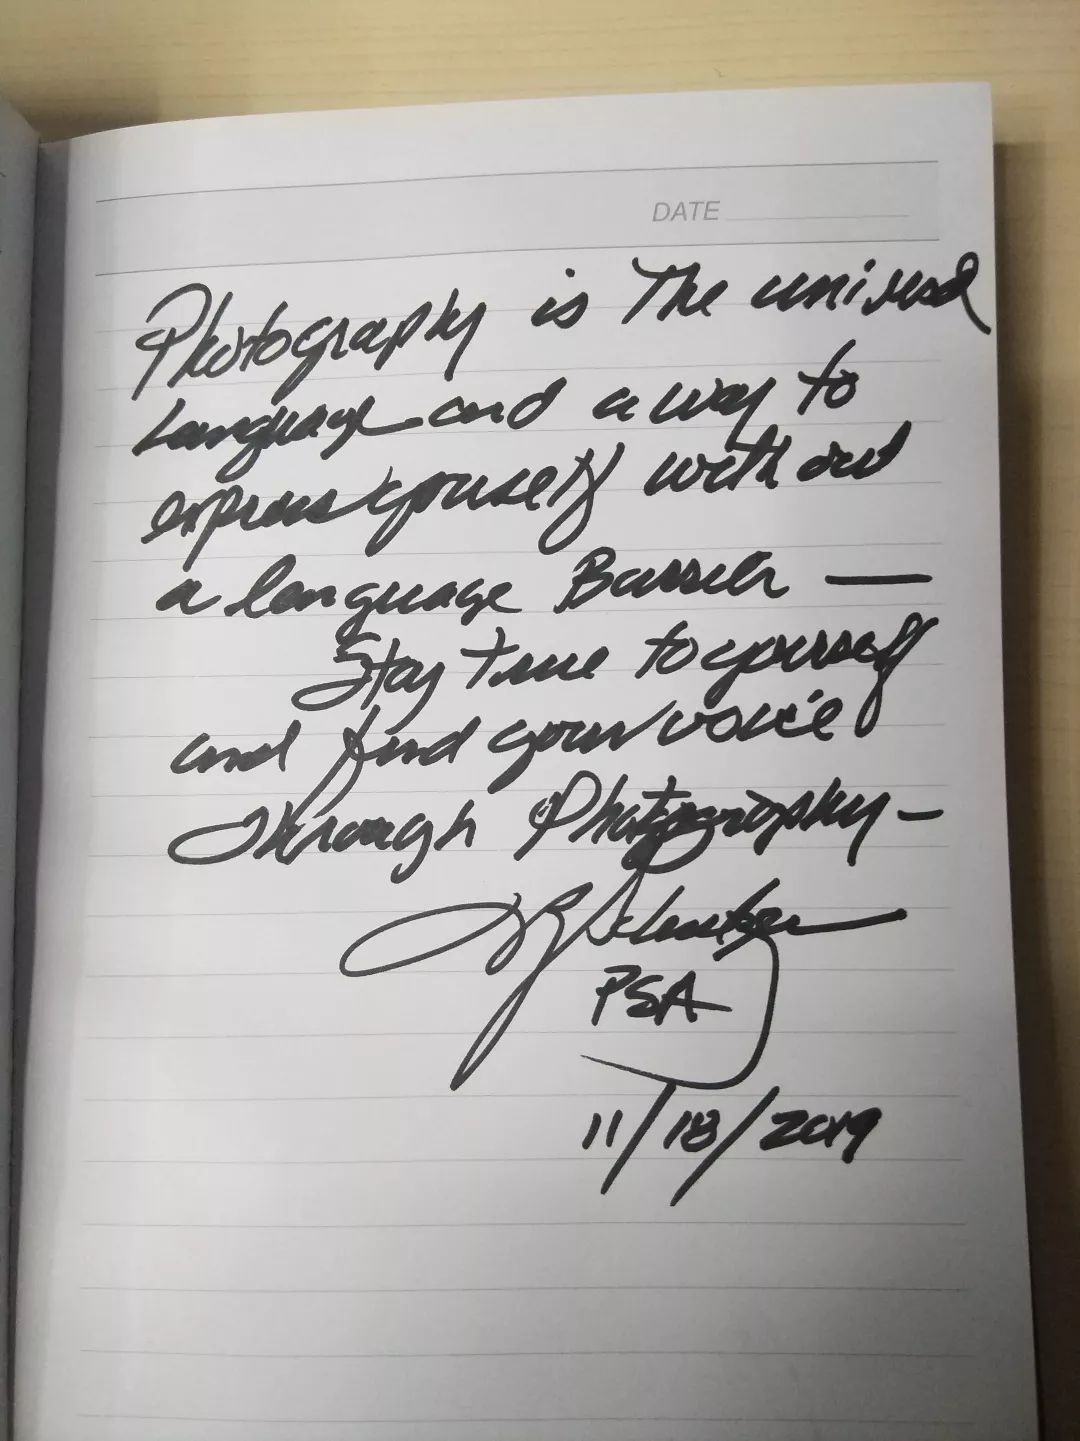 DATE
Photography is The universal
Language and a way to
express yourself with out
a language Barrier —
Stay True to yourself
and find your voice
Through Photography —
PSA
11/18/2019